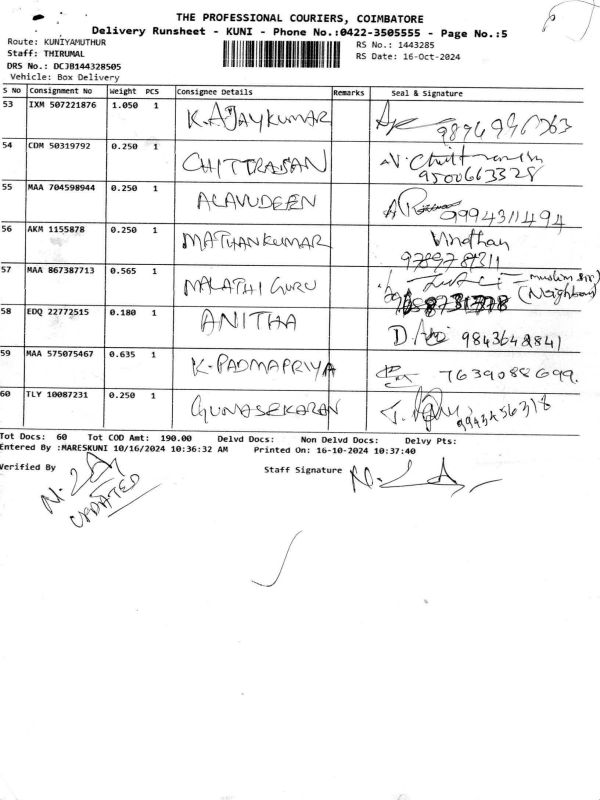 THE PROFESSIONAL COURIERS, COIMBATORE
Delivery Runsheet - KUNI - Phone No.:0422-3505555 - Page No.:5
Route: KUNIYAMUTHUR RS No.: 1443285
Staff: THIRUMAL RS Date: 16-Oct-2024
DRS No.: DCJB144328505
Vehicle: Box Delivery
S No Consignment No Weight PCS Consignee Details Remarks Seal & Signature
53 IXM 507221876 1.050 1 K. AJAYKUMAR
54 CDM 50319792 0.250 1 CHITTRAISAN
9500663328
55 MAA 704598944 0.250 1 ALAVUDEEN 9994311494
56 AKM 1155878 0.250 1 MATHANKUMAR
57 MAA 867387713 0.565 1 MALATHI GURU
(Neighbour)
58 EDQ 22772515 0.180 1 ANITHA 9843642841
59 MAA 575075467 0.635 1 K. PADMAPRIYA 7639088699.
60 TLY 10087231 0.250 1 GUNASEKARAN
Tot Docs: 60 Tot COD Amt: 190.00 Delvd Docs: Non Delvd Docs: Delvy Pts:
Entered By :MARESKUNI 10/16/2024 10:36:32 AM Printed On: 16-10-2024 10:37:40
Verified By Staff Signature
UPDATED